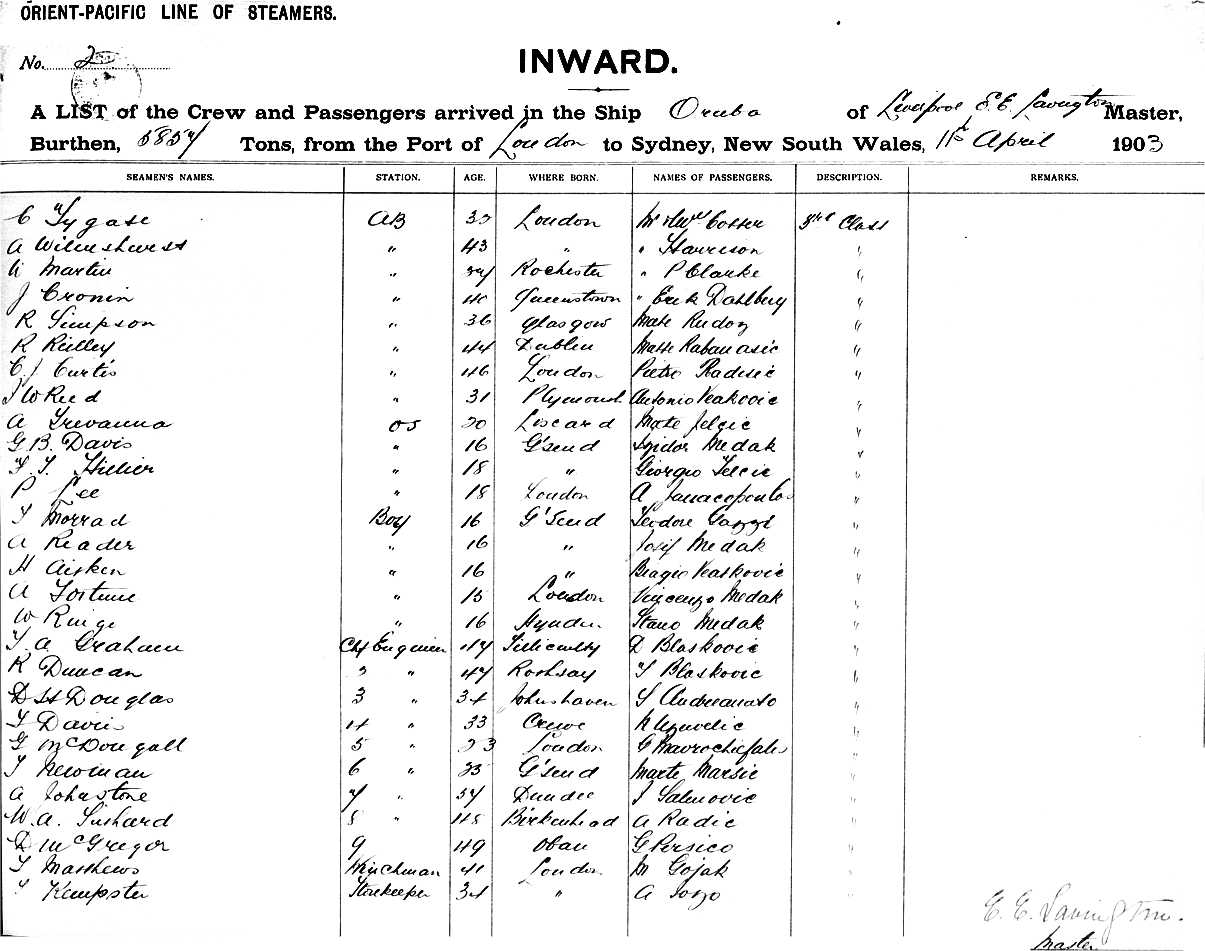 ORIENT-PACIFIC LINE OF STEAMERS.
No. 2
INWARD.
A LIST of the Crew and Passengers arrived in the Ship Oruba of Liverpool E. E. Lavington Master,
Burthen, 5857 Tons, from the Port of London to Sydney, New South Wales, 11th April 1903
SEAMEN'S NAMES. STATION. AGE. WHERE BORN. NAMES OF PASSENGERS. DESCRIPTION. REMARKS.
C AB London Mr & Mrs Cosser 3rd Class
A " 43 " " Harrison "
W Martin " Rochester " P Clarke "
J Cronin " 40 Queenstown " Erik Dahlberg "
R Simpson " 36 Glasgow Mate "
R Reilley " 44 Dublin Matte "
C J Curtis " 46 London Pietro Radisic "
J W Reed " 31 Plymouth Antonio "
A Trevanna OS 20 Liscard Mate Jelcic "
G. B. Davis " 16 G'send Isidor Medak "
F. T. Hillier " 18 " Giorgio "
P Lee " 18 London A "
T Morrad Boy 16 G'Send Teodore "
A Reader " 16 " Josif Medak "
H Aitken " 16 " Biagio "
A Fortune " 15 London Vincenzo Medak "
W Ringe " 16 Stano Medak "
T. A. Graham Chf Engineer 47 D Blaskovic "
R Duncan 2 " 47 Rothsay T Blaskovic "
D H Douglas 3 " 34 Johnshaven S "
T Davies 4 " 33 Crewe "
G McDougall 5 " 23 London G "
T Newman 6 " G'send Marte Marsic "
A Johnstone 7 " 57 Dundee J "
W. A. 8 " 48 Birkenhead A Radic "
D McGregor 9 49 Oban G Persico "
T Matthews Winchman 41 London M Gojak "
T Kempster Storekeeper 34 " A "
E. E. Lavington.
Master